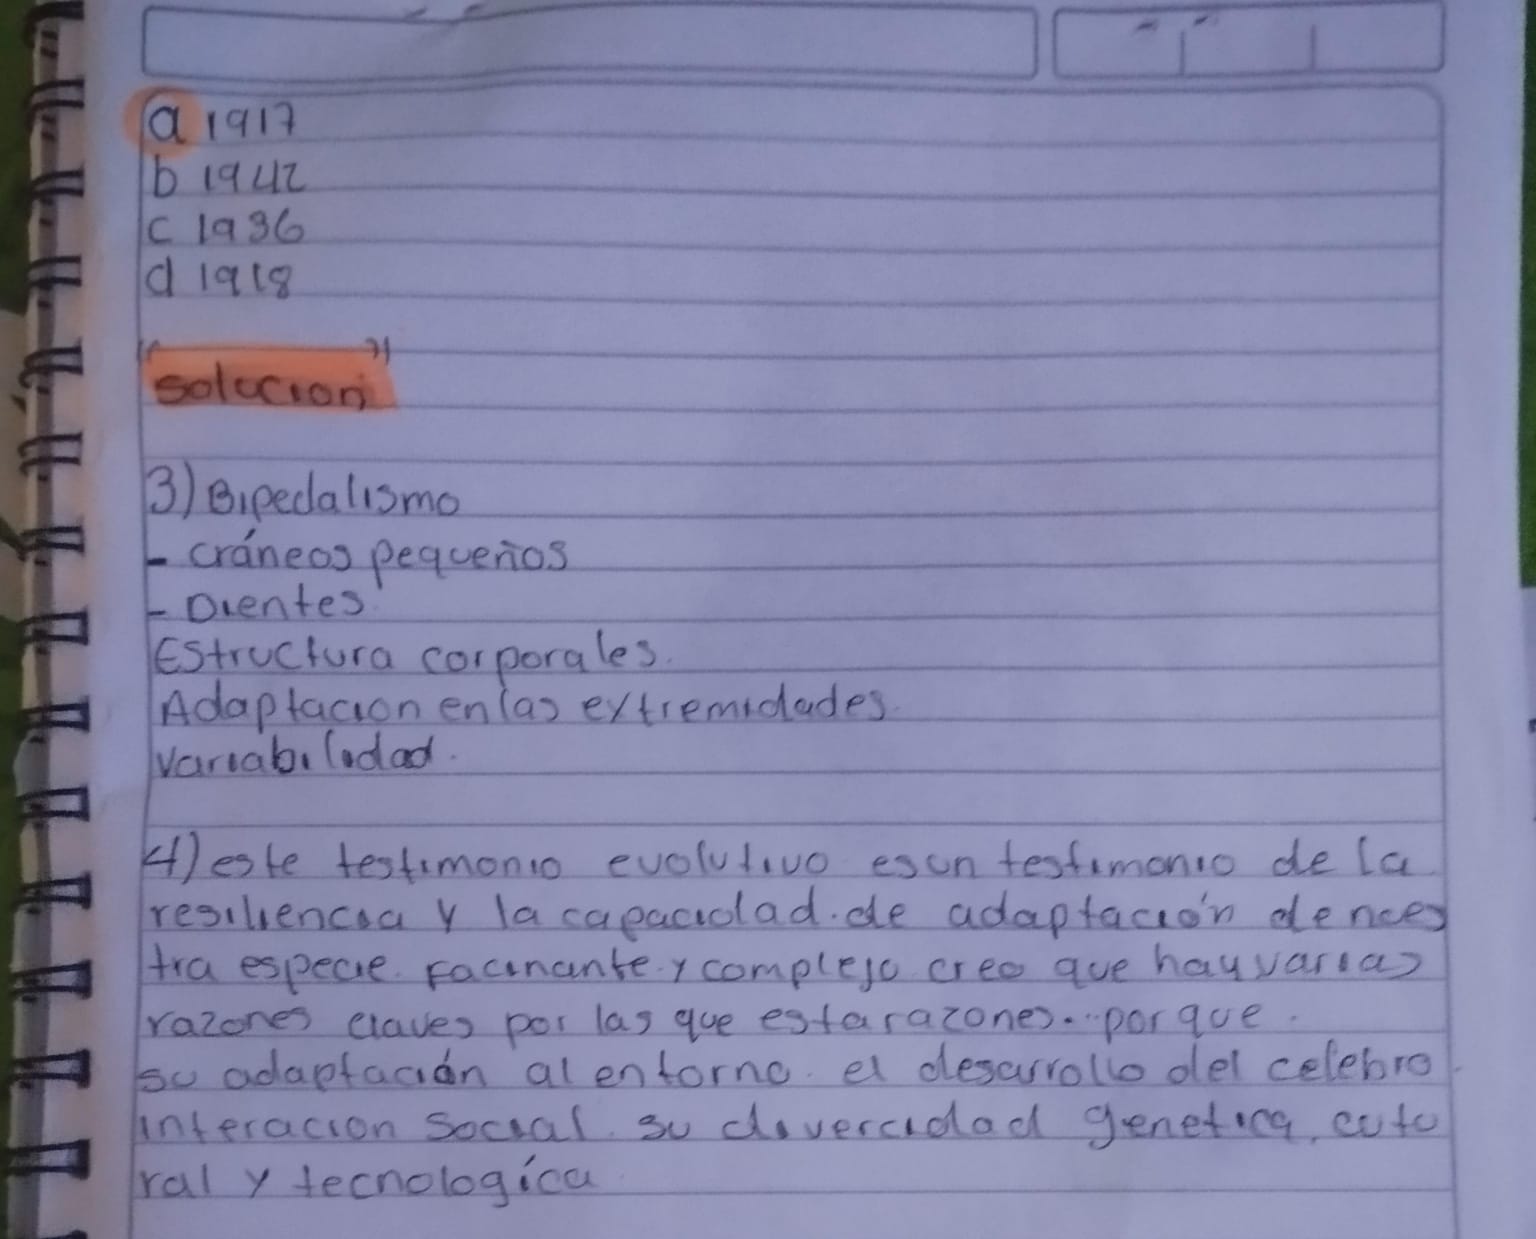 a 1917
b 1942
c 1936
d 1918
solucion
3) Bipedalismo
- cráneos pequeños
- Dientes
Estructura corporales.
Adaptacion en las extremidades.
variabilidad.
4) este testimonio evolutivo es un testimonio de la
resiliencia y la capacidad. de adaptación de nues
tra especie. Facinante y complejo creo que hay varias
razones claves por las que esta razones. porque.
su adaptación al entorno. el desarrollo del celebro
interacion social. su divercidad genetica, cutu
ral y tecnologíca